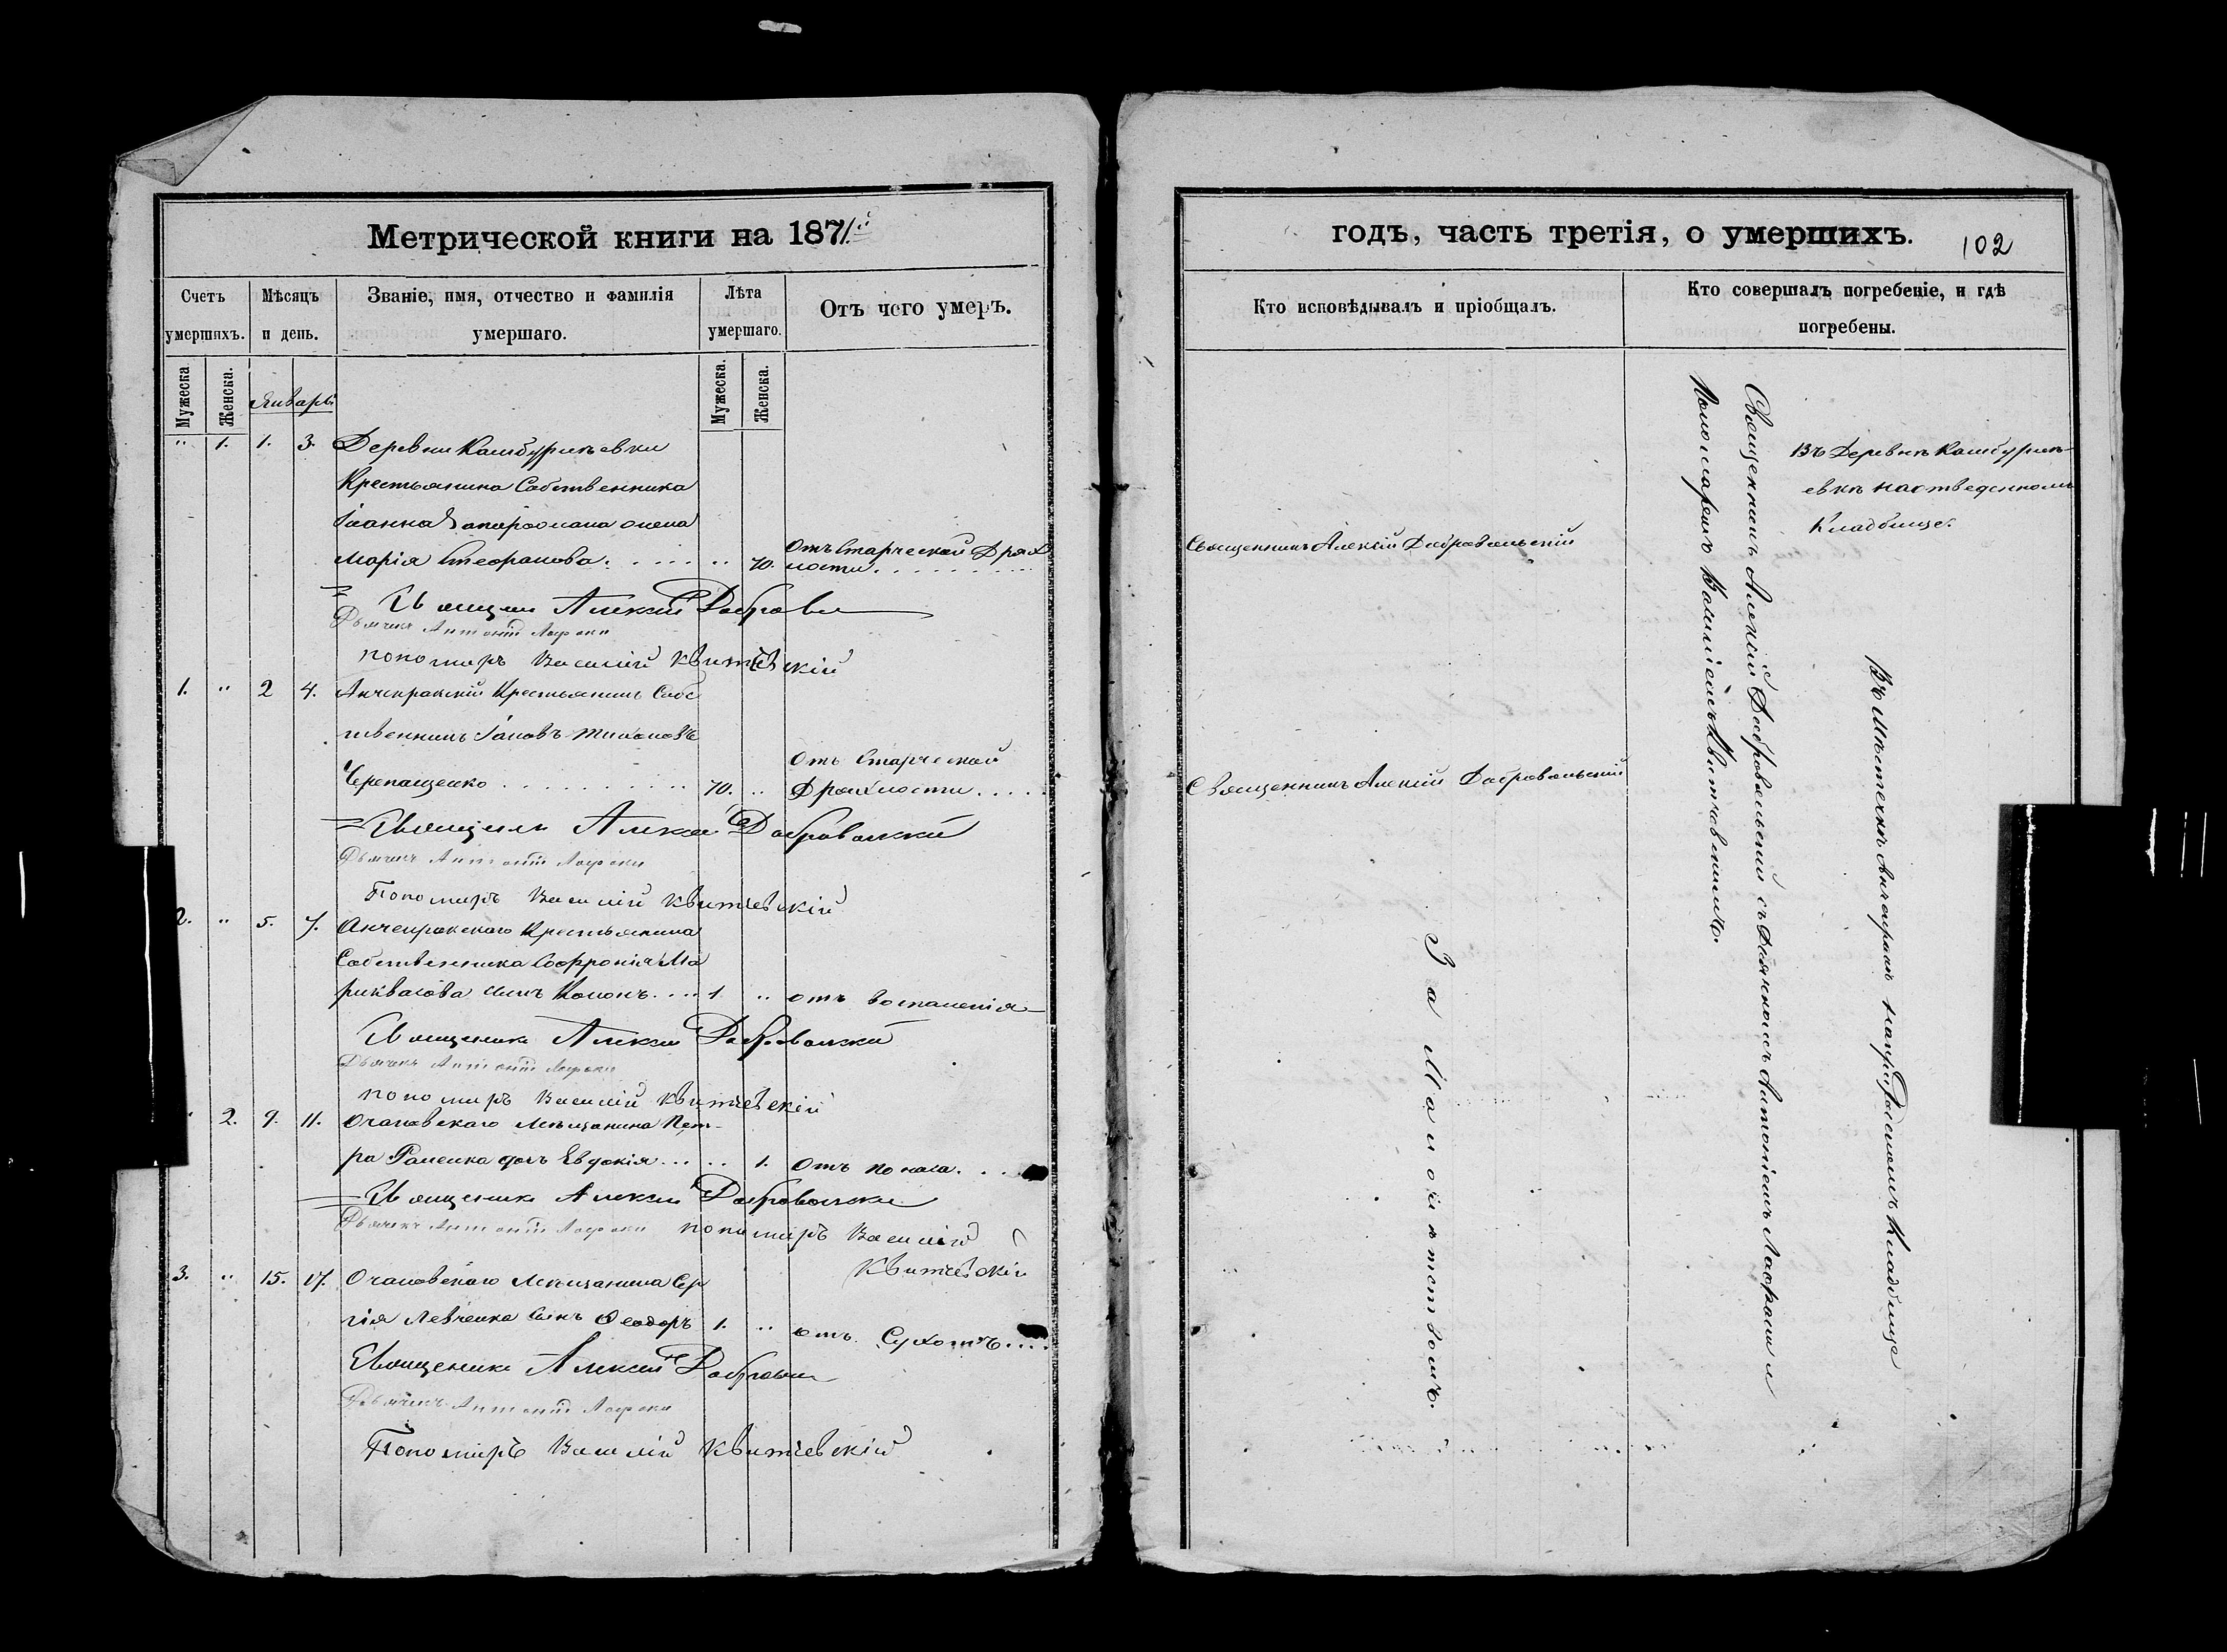 Метрической книги на 1871й
Счетъ умершихъ.
Мѣсяцъ и день.
Званіе, имя, отчество и фамилія умершаго.
Лѣта умершаго.
Отъ чего умеръ.
Мужеска
Женска.
Январь
Мужеска.
Женска.
" 1. 1. 3. Деревни Камбуриевки
Крестьянина Собственника
Іоанна жена
Марія Стефанова. . . . . . . 70. Отъ Старческой Дрях
лости. . . . . . . .
Священникъ Алексій
Дьячекъ Антоній
пономарь Василій Квитчевскій
1. " 2 4. Анчекракскій Крестьянинъ Собс
твенникъ Іаковъ Тихоновъ
Отъ Старческой
Черепащенко . . . . . . . . . 70. " Дряхлости . . . . .
Священникъ Алексій Добровольскій
Дьячекъ Антоній
Пономарь Василій Квитчевскій
2. " 5. 7. Анчекракского Крестьянина
Собственника Софронія Ма
риквасова сынъ Кононъ. . . . 1 " отъ воспаленія
Священникъ Алексій Добровольскій
Дьячекъ Антоній
пономарь Василій Квитчевскій
2. 9. 11. Очаковскаго Мѣщанина Пет-
ра дочь Евдокія . . . . . 1. Отъ поноса. . . .
Священникъ Алексій Добровольскій
Дьячекъ Антоній пономарь Василій
Квитчевскій
3. " 15. 17. Очаковского Мѣщанина Сер
гія Левченка сынъ Феодоръ 1. " отъ Сухотъ. . . .
Священникъ Алексій
Дьячекъ Антоній
Пономарь Василій Квитчевскій
годъ, часть третія, о умершихъ.
102
Кто исповѣдывалъ и пріобщалъ.
Кто совершалъ погребеніе, и гдѣ погребены.
Священникъ Алексій Добровольскій
Священникъ Алексій Добровольскій
За Малолѣтствомъ.
Священникъ Алексій Добровольскій съ Дьячкомъ Антоніемъ и
Пономаремъ Василіемъ Квитчевскимъ.
Въ Деревнѣ Камбури-
евкѣ на отведенномъ
Кладбище.
Въ Мѣстечкѣ Анчекракѣ на приходскомъ Кладбище